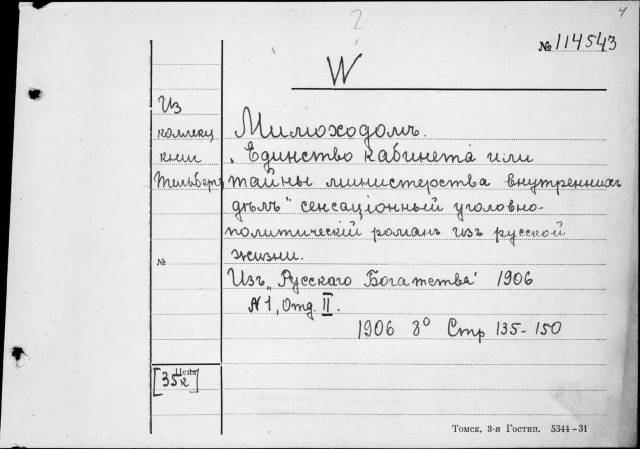 ?
4
№ 114543
W
Из
коллекц
книг
Тильберга
Мимоходомъ.
„Единство кабинета или
тайны министерства внутреннихъ
дѣлъ" сенсаціонный уголовно-
политическій романъ изъ русской
жизни.
№
Изъ „Русскаго Богатства" 1906
N 1, Отд. II.
1906 8° Стр 135-150
Цена
[35к]
Томск, 3-я Гостип. 5344-31